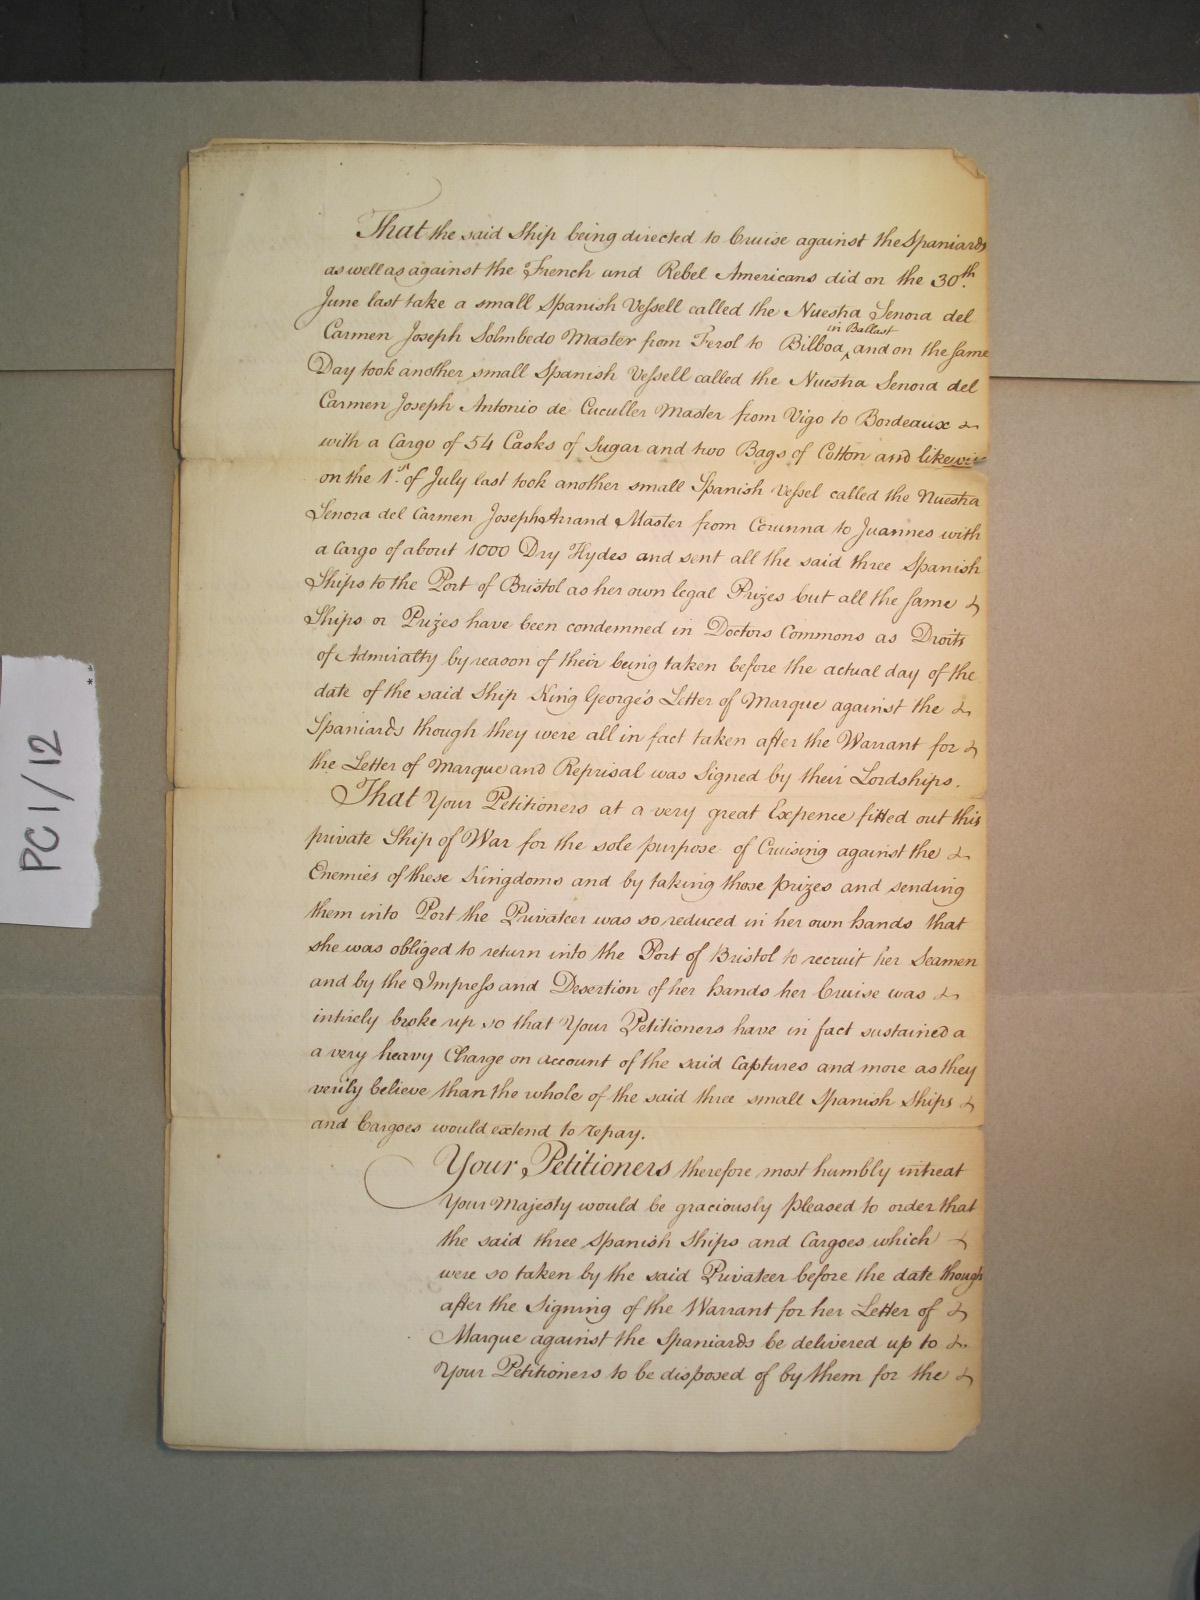 That the said Ship being directed to Cruise against the Spaniards
as well as against the French and Rebel Americans did on the 30th.
June last take a small Spanish Vessell called the Nuestra Senora del
in Ballast
Carmen Joseph Solmbedo Master from Ferol to Bilboa ^ and on the same
Day took another small Spanish Vessell called the Nuestra Senora del
Carmen Joseph Antonio de Cuculler Master from Vigo to Bordeaux &
with a Cargo of 54 Casks of Sugar and two Bags of Cotton and likewise
on the 1st. of July last took another small Spanish Vessel called the Nuestra
Senora del Carmen Joseph Arrand Master from Corunna to Juannes with
a Cargo of about 1000 Dry Hydes and sent all the said three Spanish
Ships to the Port of Bristol as her own legal Prizes but all the same &
Ships or Prizes have been condemned in Doctors Commons as Droits
of Admiralty by reason of their being taken before the actual day of the
date of the said Ship King George's Letter of Marque against the &
Spaniards though they were all in fact taken after the Warrant for &
the Letter of Marque and Reprisal was Signed by their Lordships.
That Your Petitioners at a very great Expence fitted out this
private Ship of War for the sole purpose of Cruising against the &
Enemies of these Kingdoms and by taking those prizes and sending
them into Port the Privateer was so reduced in her own hands that
she was obliged to return into the Port of Bristol to recruit her Seamen
and by the Impress and Desertion of her hands her Cruise was &
intirely broke up so that Your Petitioners have in fact sustained a
a very heavy Charge on account of the said Captures and more as they
verily believe than the whole of the said three small Spanish Ships &
and Cargoes would extend to repay.
Your Petitioners therefore most humbly intreat
Your Majesty would be graciously pleased to order that
the said three Spanish Ships and Cargoes which &
were so taken by the said Privateer before the date though
after the Signing of the Warrant for her Letter of &
Marque against the Spaniards be delivered up to &
Your Petitioners to be disposed of by them for the &
PC1/12